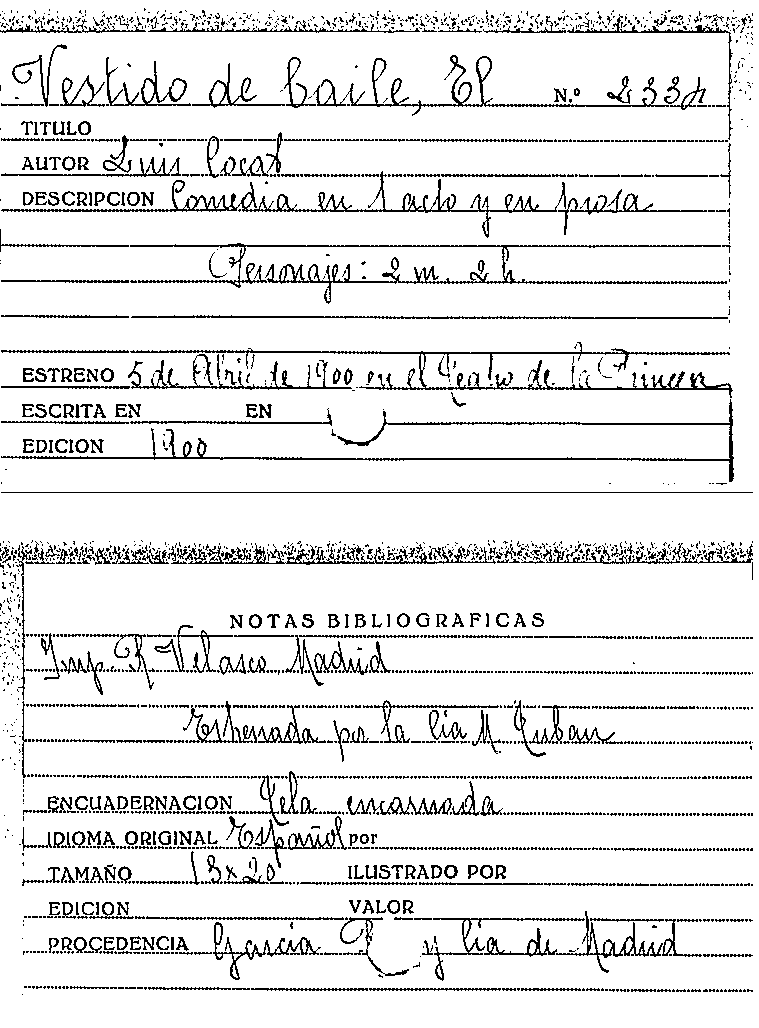 Vestido de baile, El N.º 2334
TITULO
AUTOR Luis Cocat
DESCRIPCION Comedia en 1 acto y en prosa
Personajes: 2 m. 2 h.
ESTRENO 5 de Abril de 1900 en el Teatro de la Princesa
ESCRITA EN EN
EDICION 1900
NOTAS BIBLIOGRAFICAS
Imp. R Velasco Madrid
Estrenada por la Cia M Tubau
ENCUADERNACION Tela encarnada
IDIOMA ORIGINAL Español por
TAMAÑO 13x20 ILUSTRADO POR
EDICION VALOR
PROCEDENCIA García R y Cia de Madrid